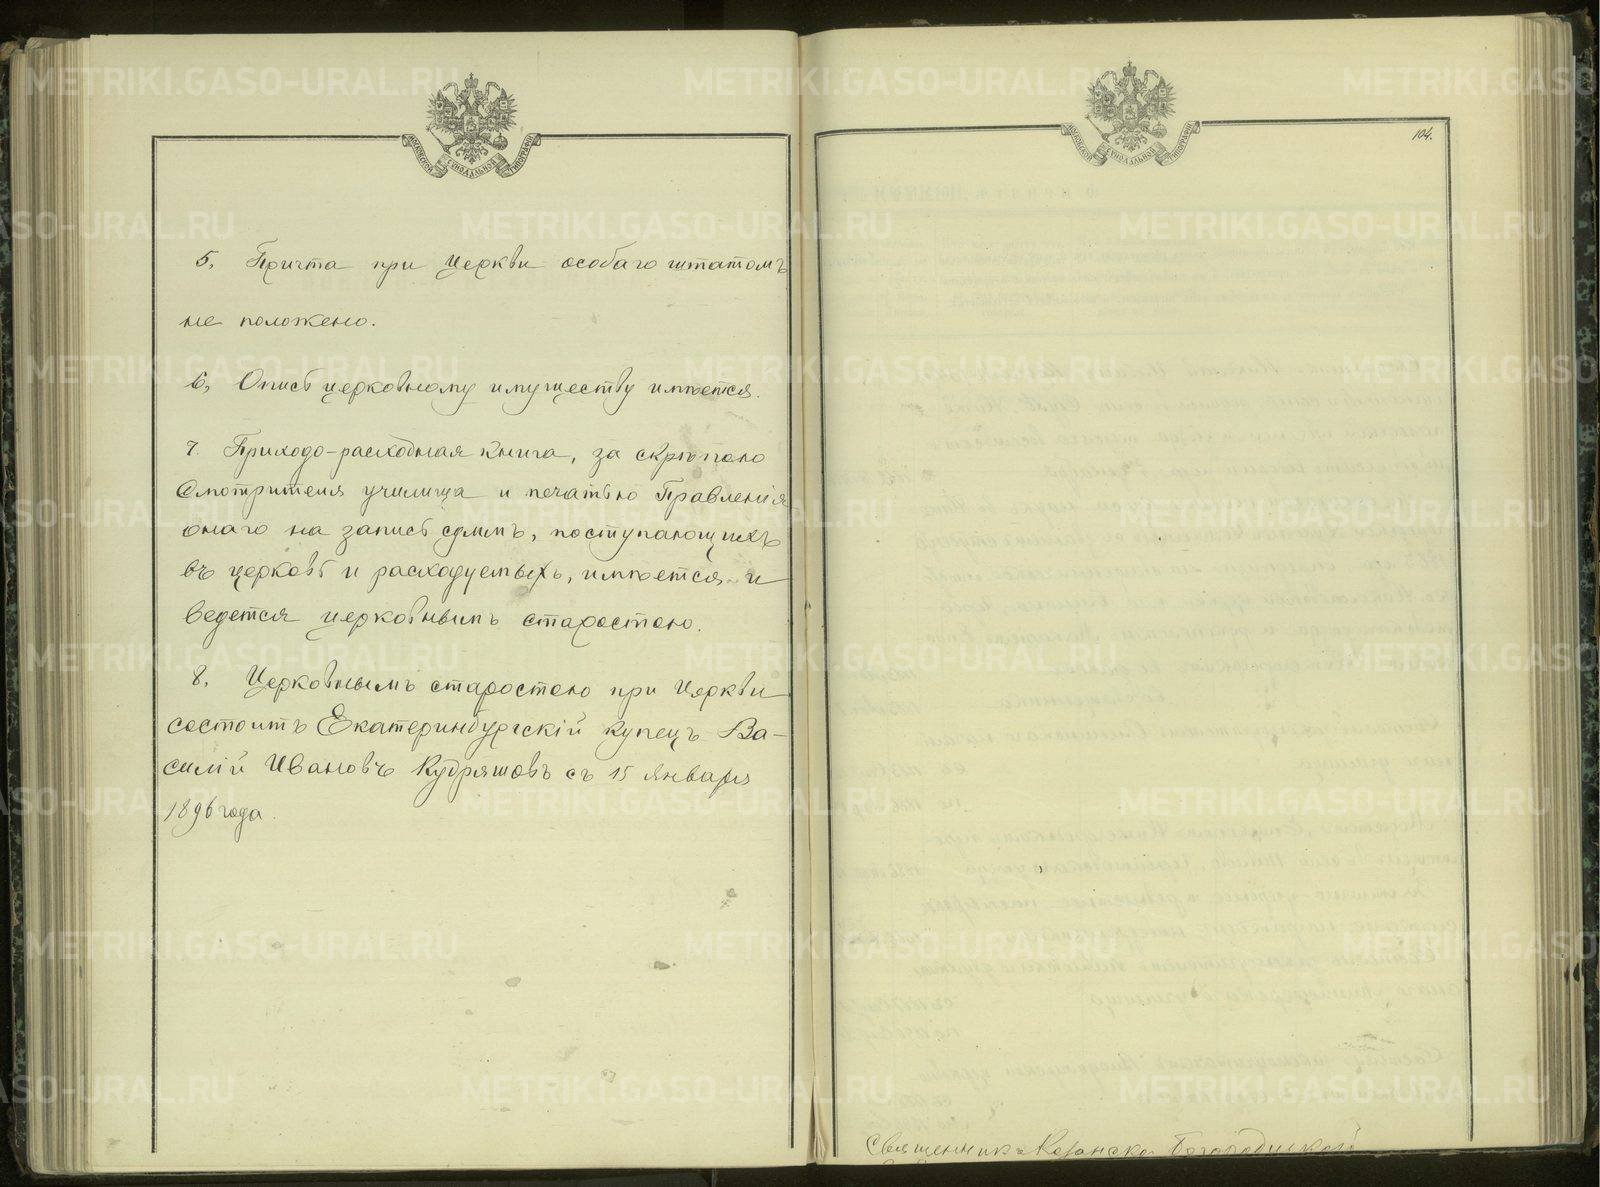 МОСКОВСКОЙ СѴНОДАЛЬНОЙ ТИПОГРАФІИ
5, Причта при Церкви особаго штатомъ
не положено.
6, Опись церковному имуществу имѣется.
7. Приходо-расходная книга, за скрѣпою
Смотрителя училища и печатью Правленія
онаго на запись суммъ, поступающихъ
въ церковь и расходуемыхъ, имѣется и
ведется церковнымъ старостою.
8, Церковнымъ старостою при Церкви
состоитъ Екатеринбургскій купецъ Ва-
силій Ивановъ Кудряшовъ съ 15 января
1896 года.
МОСКОВСКОЙ СѴНОДАЛЬНОЙ ТИПОГРАФІИ
104.
Священникъ Казанско-Богородицкой
METRIKI.GASO-URAL.RU